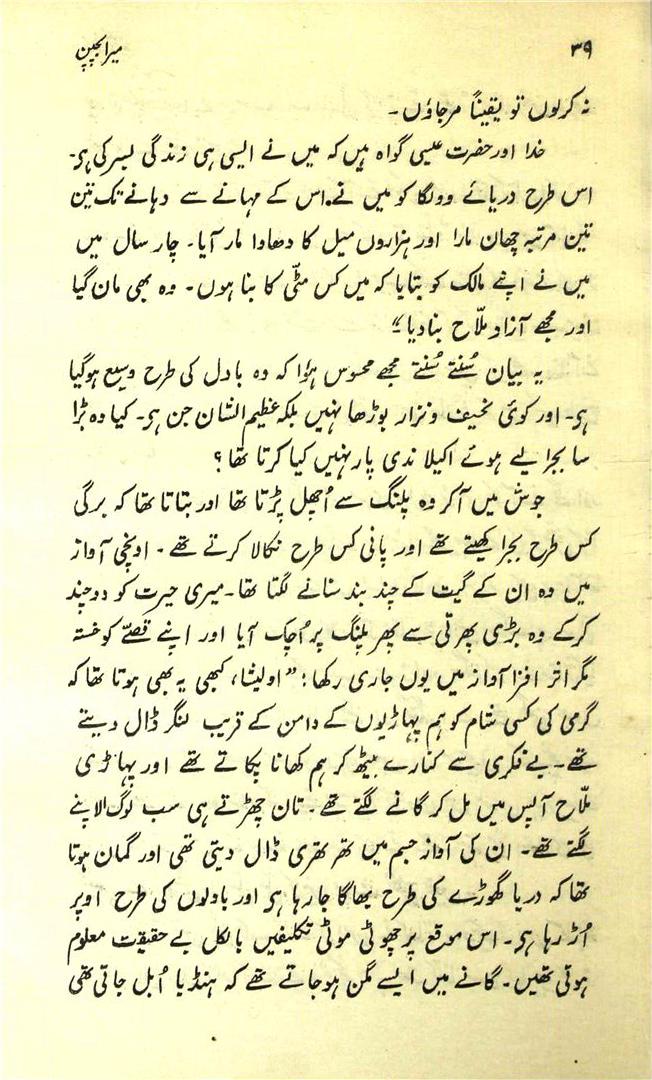 ۳۹ میرا بچپن
نہ کرلوں تو یقیناً مرجاؤں ۔
خدا اور حضرت عیسیٰ گواہ ہیں کہ میں نے ایسی ہی زندگی بسر کی ہی۔
اس طرح دریائے وولگا کو میں نے اس کے مہانے سے دہانے تک تین
تین مرتبہ چھان مارا اور ہزاروں میل کا دھاوا مار آیا۔ چار سال میں
میں نے اپنے مالک کو بتایا کہ میں کس مٹّی کا بنا ہوں۔ وہ بھی مان گیا
اور مجھے آزاد ملّاح بنا دیا"
یہ بیان سُنتے سُنتے مجھے محسوس ہؤا کہ وہ بادل کی طرح وسیع ہوگیا
ہی۔ اور کوئی نحیف و نزار بوڑھا نہیں بلکہ عظیم الشان جن ہی۔ کیا وہ بڑا
سا بجرا لیے ہوئے اکیلا ندی پار نہیں کیا کرتا تھا ؟
جوش میں آکر وہ پلنگ سے اُچھل پڑتا تھا اور بتاتا تھا کہ برگی
کس طرح بجرا کھیتے تھے اور پانی کس طرح نکالا کرتے تھے ۔ اونچی آواز
میں وہ ان کے گیت کے چند بند سنانے لگتا تھا۔ میری حیرت کو دوچند
کرکے وہ بڑی پھرتی سے پھر پلنگ پر اُچک آیا اور اپنے قصّے کو خستہ
مگر اثر افزا آواز میں یوں جاری رکھا: "اولیشا، کبھی یہ بھی ہوتا تھا کہ
گرمی کی کسی شام کو ہم پہاڑیوں کے دامن کے قریب لنگر ڈال دیتے
تھے۔ بے فکری سے کنارے بیٹھ کر ہم کھانا پکاتے تھے اور پہاڑی
ملّاح آپس میں مل کر گانے لگتے تھے۔ تان چھڑتے ہی سب لوگ الاپنے
لگتے تھے۔ ان کی آواز جسم میں تھرتھری ڈال دیتی تھی اور گمان ہوتا
تھا کہ دریا گھوڑے کی طرح بھاگا جا رہا ہی اور بادلوں کی طرح اوپر
اُڑ رہا ہی۔ اس موقع پر چھوٹی موٹی تکلیفیں بالکل بے حقیقت معلوم
ہوتی تھیں۔ گانے میں ایسے مگن ہوجاتے تھے کہ ہنڈیا اُبل جاتی تھی